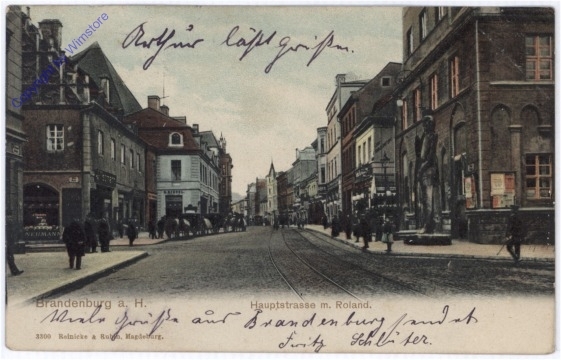 Arthur läßt grüßen.
Copyright by Wimstore
Brandenburg a. H.
Hauptstrasse m. Roland.
Viele Grüße aus Brandenburg sendet
Fritz Schlüter.
3300 Reinicke & Rubin, Magdeburg.